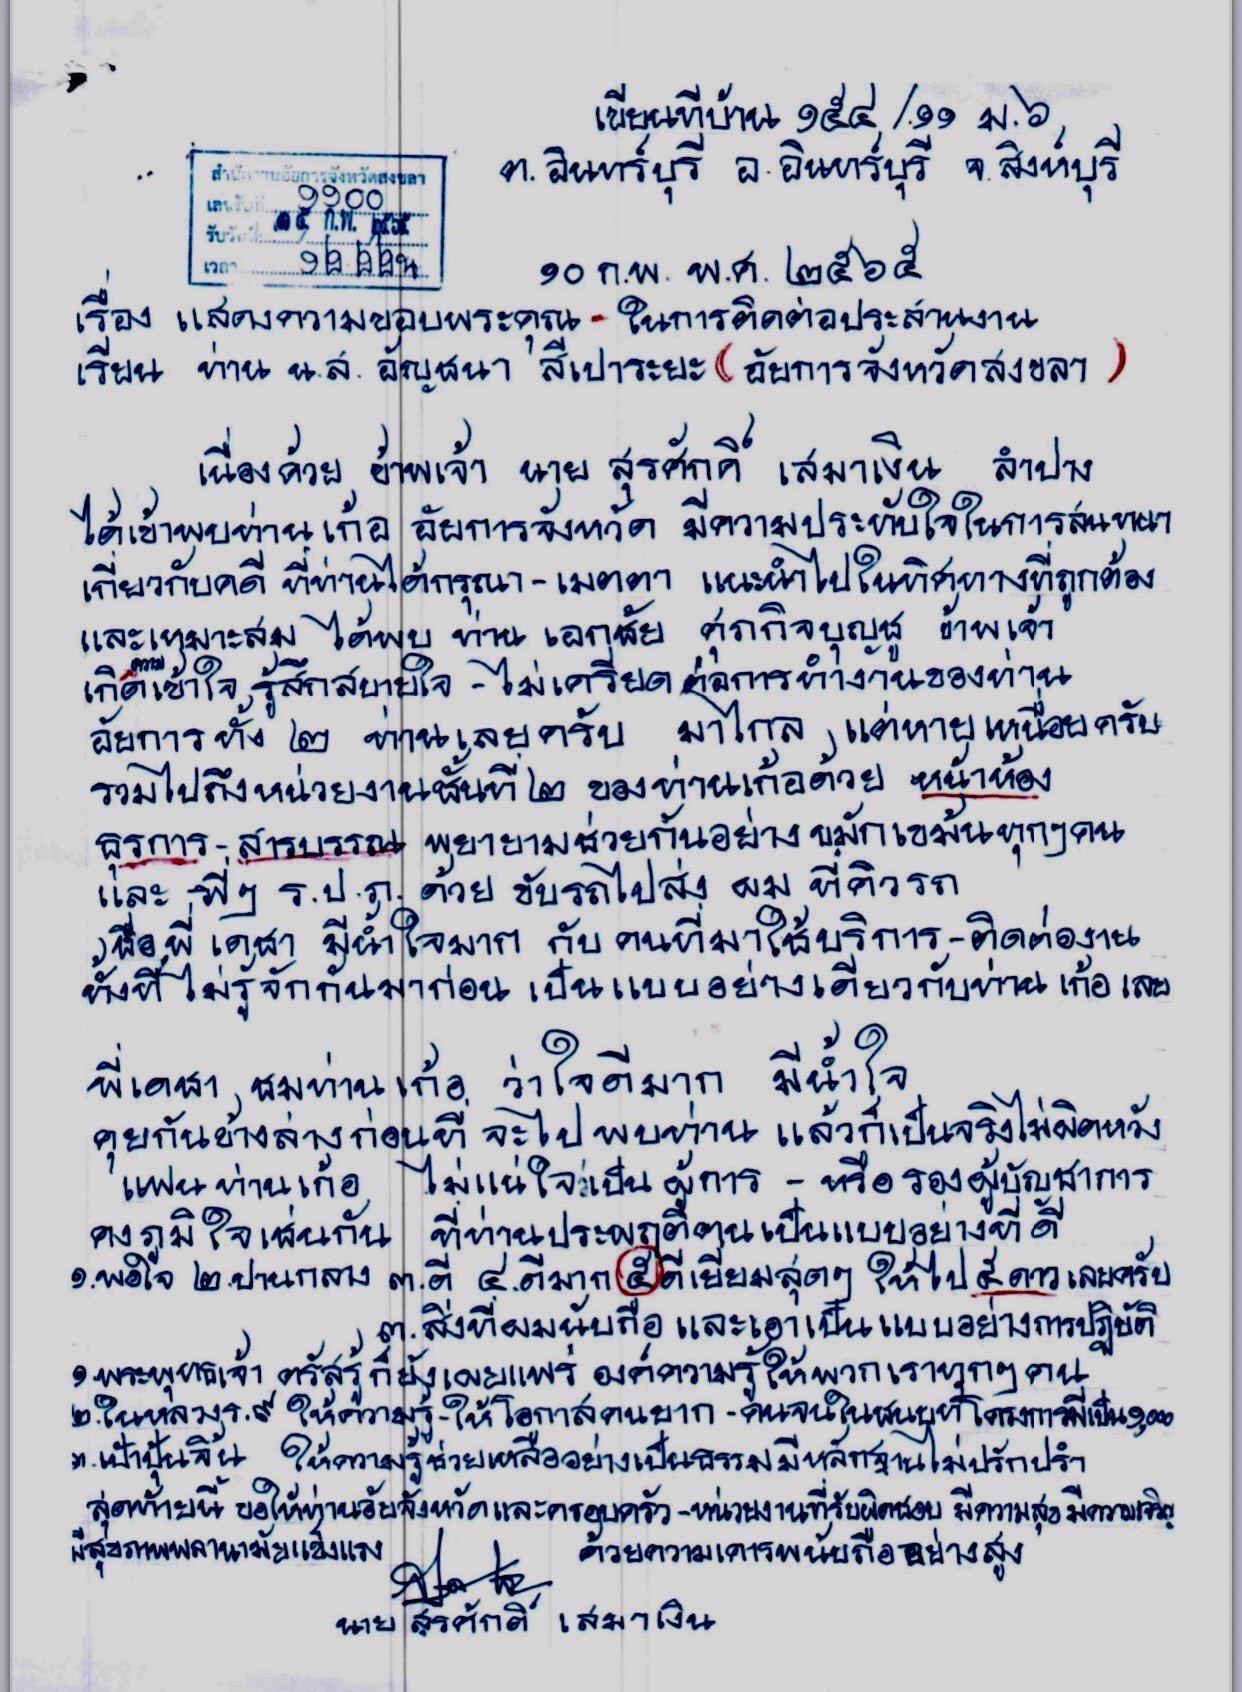 เขียนที่บ้าน ๑๕๔/๑๑ ม.๖
ต.อินทร์บุรี อ.อินทร์บุรี จ.สิงห์บุรี
สำนักงานอัยการจังหวัดสงขลา
เลขรับที่ ๑๑๐๐
รับวันที่ ๑๕ ก.พ. ๒๕๖๕
เวลา
๑๐ ก.พ. พ.ศ. ๒๕๖๕
เรื่อง แสดงความขอบพระคุณ - ในการติดต่อประสานงาน
เรียน ท่าน น.ส. อัญชนา สีเปาระยะ (อัยการจังหวัดสงขลา)
เนื่องด้วย ข้าพเจ้า นาย สุรศักดิ์ เสมาเงิน ลำปาง
ได้เข้าพบท่านเก้อ อัยการจังหวัด มีความประทับใจในการสนทนา
เกี่ยวกับคดี ที่ท่านได้กรุณา - เมตตา แนะนำไปในทิศทางที่ถูกต้อง
และเหมาะสม ได้พบ ท่าน เอกชัย ศุภกิจบุญชู ข้าพเจ้า
เกิดความเข้าใจ รู้สึกสบายใจ - ไม่เครียด ต่อการทำงานของท่าน
อัยการ ทั้ง ๒ ท่านเลยครับ มาไกล แต่หายเหนื่อยครับ
รวมไปถึงหน่วยงานชั้นที่ ๒ ของท่านเก้อด้วย หน้าห้อง
ธุรการ - สารบรรณ พยายามช่วยกันอย่าง ขมักเขม้นทุกๆคน
และ พี่ๆ ร.ป.ภ. ด้วย ขับรถไปส่ง ผม ที่คิวรถ
ชื่อ พี่ เดชา มีน้ำใจมาก กับ คนที่มาใช้บริการ - ติดต่องาน
ทั้งที่ ไม่รู้จักกันมาก่อน เป็นแบบอย่างเดียวกับท่าน เก้อ เลย
พี่เดชา ชมท่านเก้อ ว่าใจดีมาก มีน้ำใจ
คุยกันข้างล่างก่อนที่ จะไป พบท่าน แล้วก็เป็นจริงไม่ผิดหวัง
แฟนท่านเก้อ ไม่แน่ใจว่าเป็น ผู้การ - หรือ รองผู้บัญชาการ
คงภูมิใจเช่นกัน ที่ท่านประพฤติตนเป็นแบบอย่างที่ดี
๑.พอใจ ๒.ปานกลาง ๓.ดี ๔.ดีมาก ๕ ดีเยี่ยมสุดๆ ให้ไป ๕ ดาว เลยครับ
๓.สิ่งที่ผมนับถือ และเอาเป็นแบบอย่างการปฏิบัติ
๑.พระพุทธเจ้า ตรัสรู้ ก็ยังเผยแพร่ องค์ความรู้ ให้พวกเราทุกๆ คน
๒.ในหลวง ร.๙ ให้ความรู้ - ให้โอกาสคนยาก - คนจนในชนบทโครงการมีเป็น ๑,๐๐๐
๓.เปาปุ้นจิ้น ให้ความรู้ช่วยเหลืออย่างเป็นธรรมมีหลักฐานไม่ปรักปรำ
สุดท้ายนี้ ขอให้ท่านอัยจังหวัดและครอบครัว - หน่วยงานที่รับผิดชอบ มีความสุข มีความเจริญ
มีสุขภาพพลานามัยแข็งแรง ด้วยความเคารพนับถืออย่างสูง
นาย สุรศักดิ์ เสมาเงิน